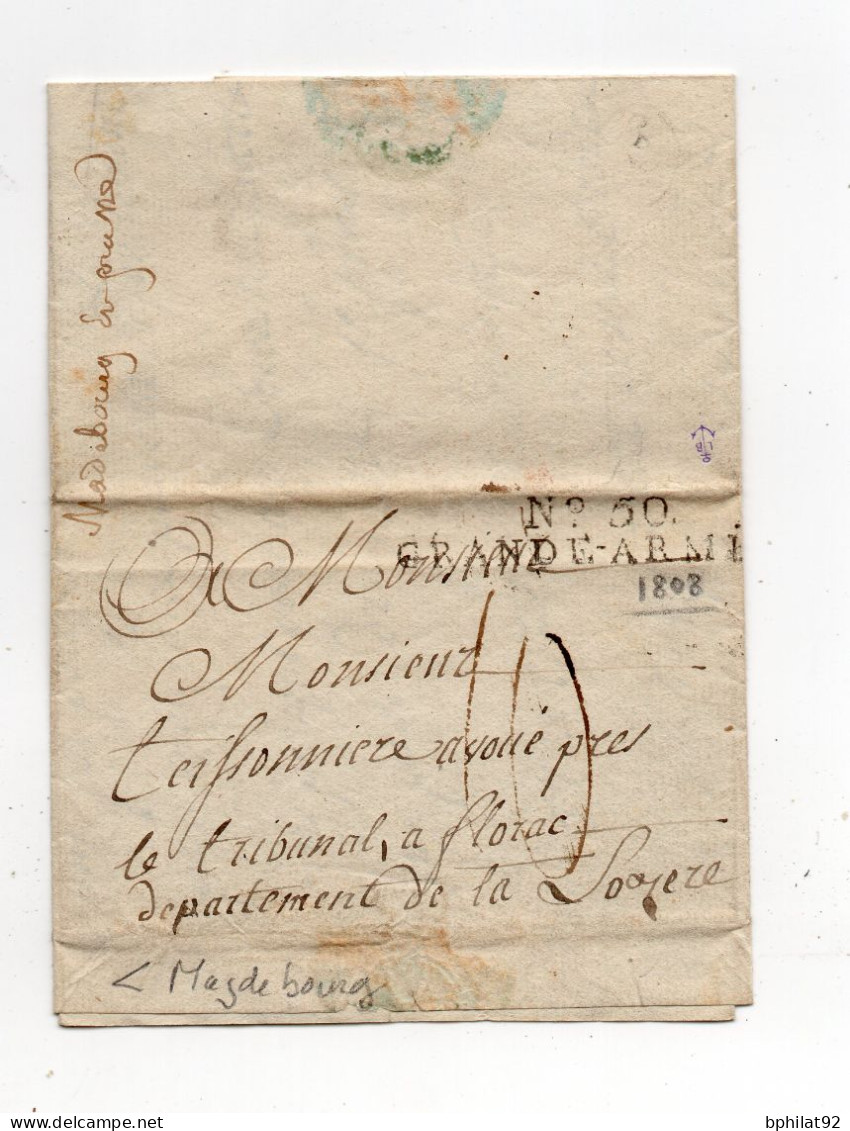 Madebourg En prusse
Nº 30.
GRANDE-ARMÉ
1808
A Monsieur
Monsieur
teissonniere avoué pres
le tribunal, a florac
departement de la Lozere
< Magdebourg
bphilat92